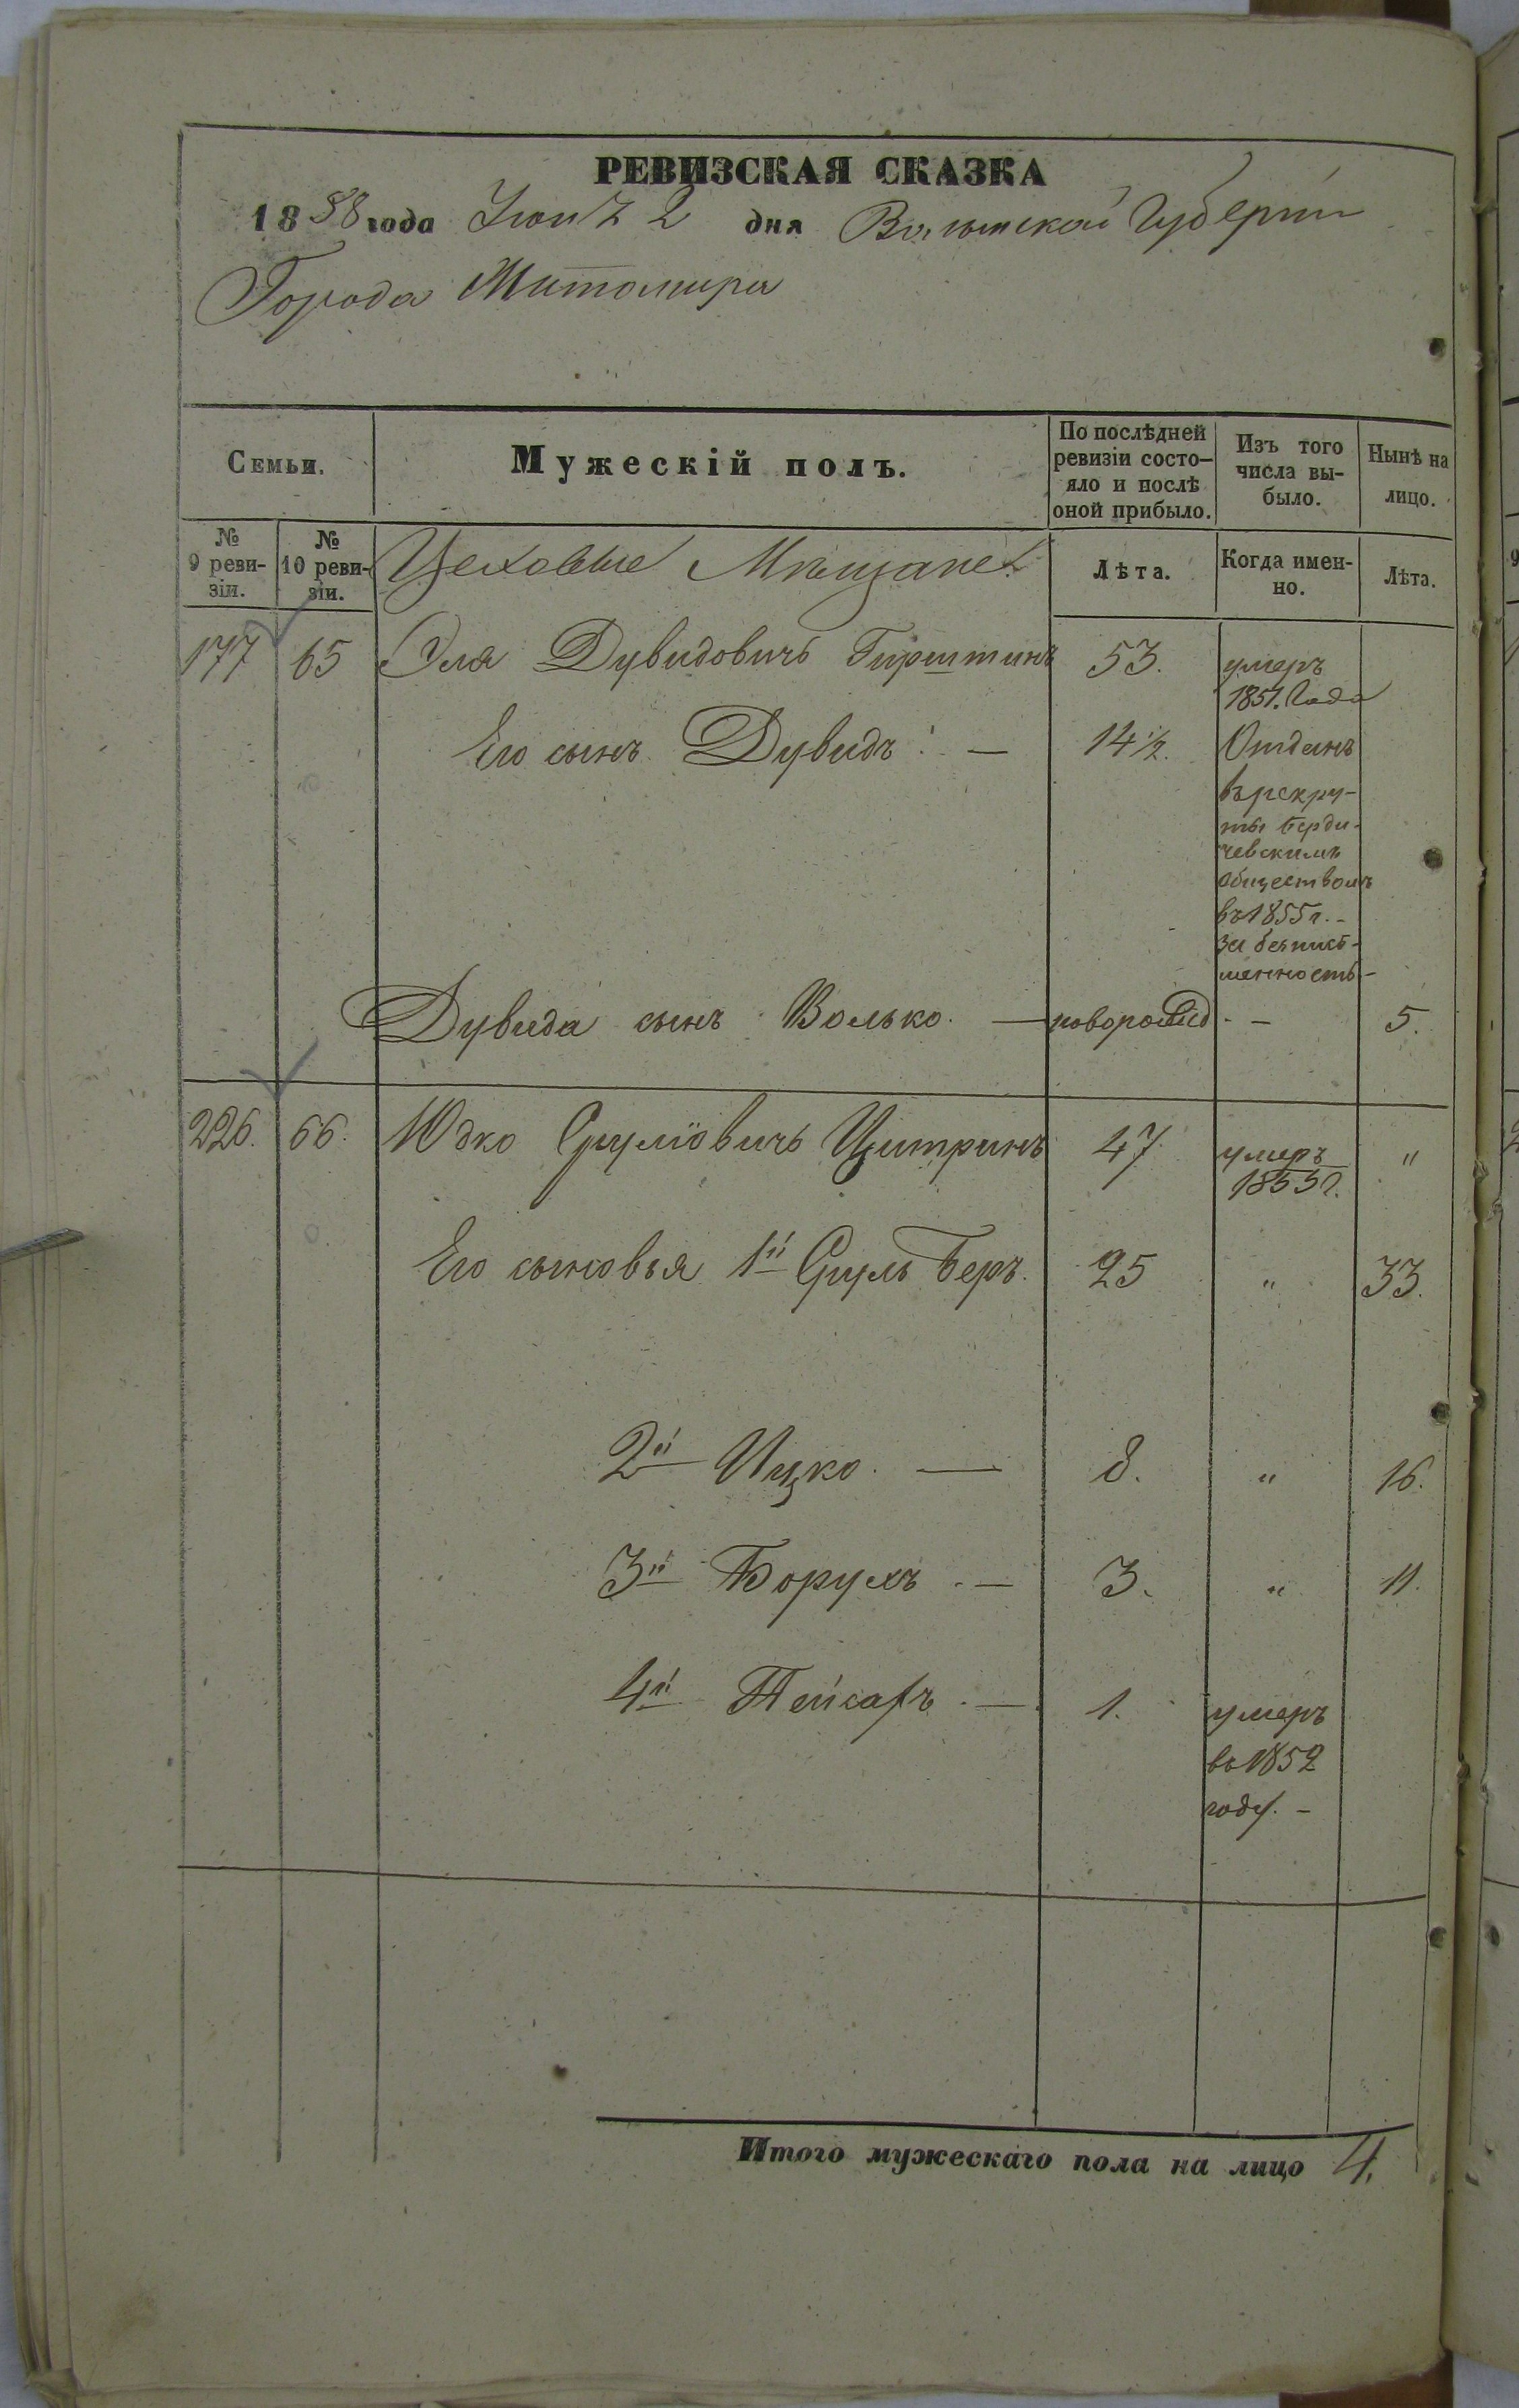 РЕВИЗСКАЯ СКАЗКА
1858 года Іюня 2 дня Волынской Губерніи
Города Житомира
Семьи.
Мужескій полъ.
По послѣдней
ревизіи состо-
яло и послѣ
оной прибыло.
Изъ того
числа вы-
было.
Нынѣ на
лицо.
№
9 реви-
зіи.
№
10 реви-
зіи.
Цеховые Мѣщане.
Лѣта.
Когда имен-
но.
Лѣта.
177 65 Эля Дувидовичъ Гирштинъ 53. умеръ
1851. Года
Его сынъ Дувидъ. — 14 1/2. Отданъ
в рекру-
ты Берди-
чевскимъ
обществомъ
въ 1855 г. -
за безпись-
менность -
Дувида сынъ Волько. — новорожд - - 5.
226. 66. Юдко Сруліовичъ Цитринъ 47 умеръ "
1855 г.
Его сыновья 1й Сруль Беръ. 25 " 33.
2й Ицко. — 8. " 16.
3й Борухъ. — 3. " 11.
4й Пейсахъ. — 1. умеръ
въ 1852
году. -
Итого мужескаго пола на лицо 4.